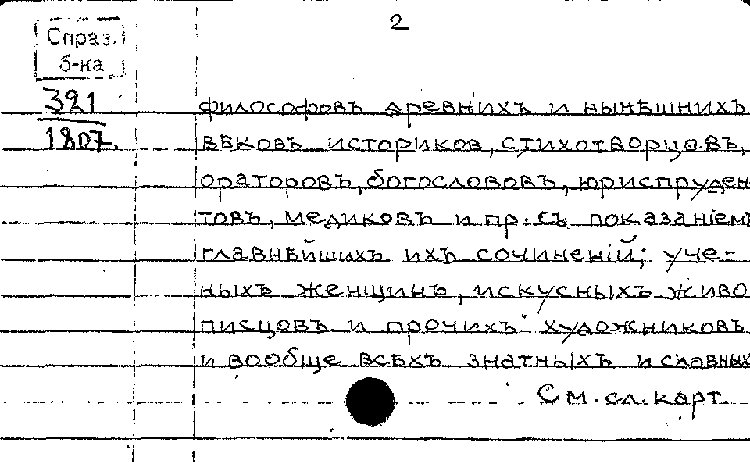 2
Справ.
б-ка
321
1807.
философовъ древнихъ и нынѣшнихъ
вѣковъ историков, стихотворцовъ,
ораторовъ, богослововъ, юриспруден
товъ, медиковъ и пр. съ показаніемъ
главнѣйшихъ ихъ сочиненій; уче-
ныхъ женщинъ, искусныхъ живо
писцовъ и прочихъ художниковъ
и вообще всѣхъ знатныхъ и славных
См. сл. карт